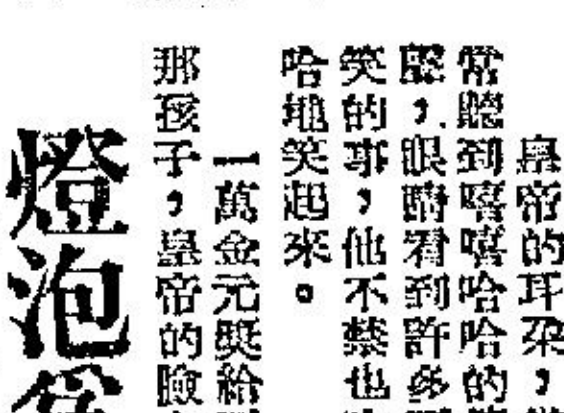 皇帝的耳朵，
常聽到嘻嘻哈哈的
聲，眼睛看到許多
笑的事，他不禁也
哈地笑起來。
一萬金元獎給
那孩子，皇帝的臉
燈泡